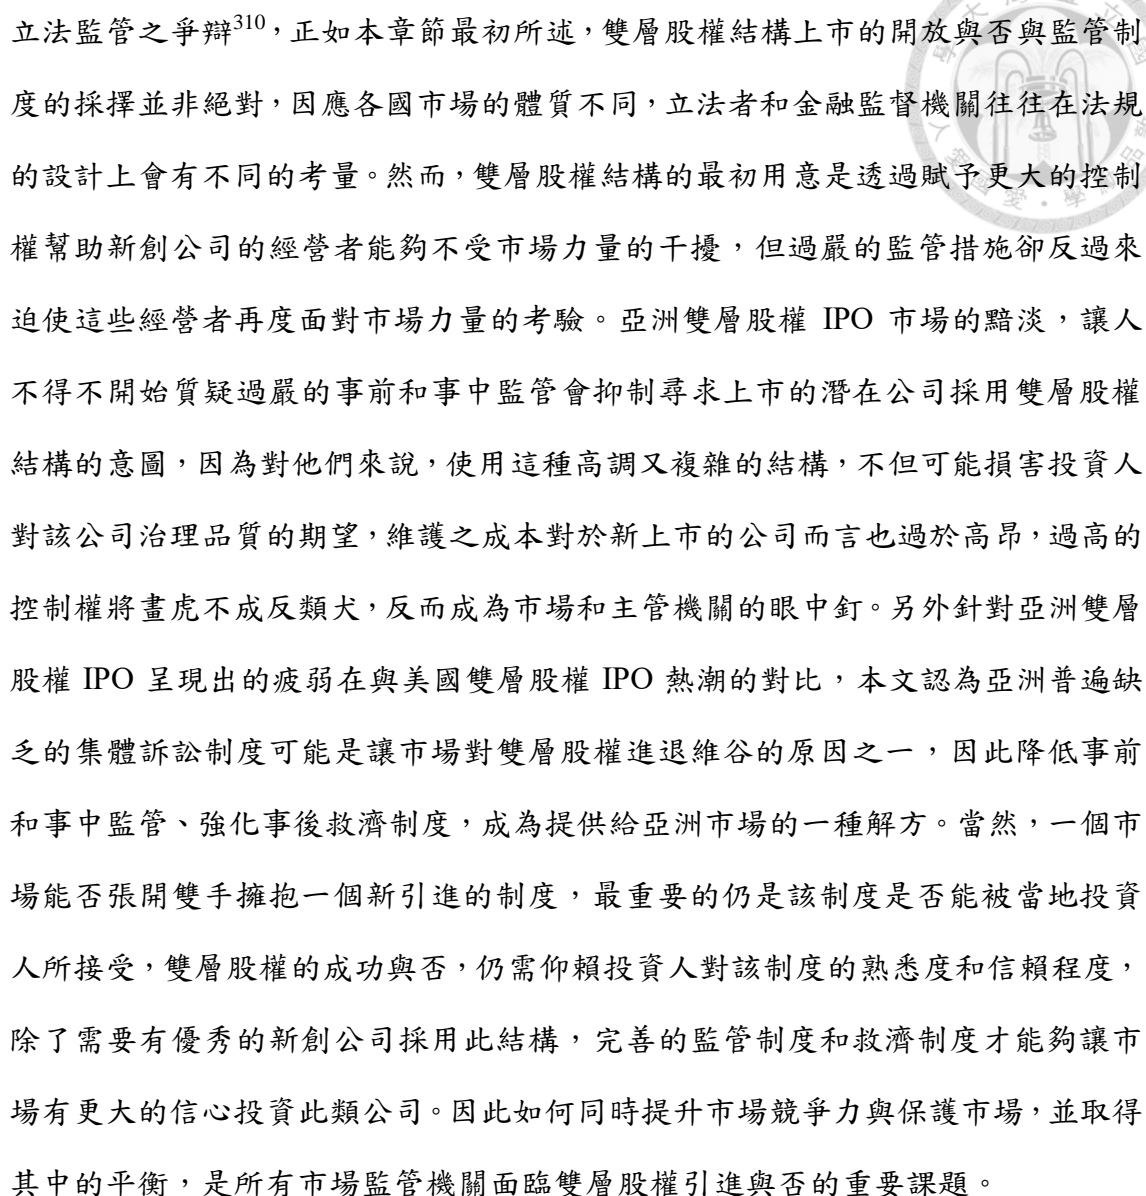 立法監管之爭辯310，正如本章節最初所述，雙層股權結構上市的開放與否與監管制
度的採擇並非絕對，因應各國市場的體質不同，立法者和金融監督機關往往在法規
的設計上會有不同的考量。然而，雙層股權結構的最初用意是透過賦予更大的控制
權幫助新創公司的經營者能夠不受市場力量的干擾，但過嚴的監管措施卻反過來
迫使這些經營者再度面對市場力量的考驗。亞洲雙層股權 IPO 市場的黯淡，讓人
不得不開始質疑過嚴的事前和事中監管會抑制尋求上市的潛在公司採用雙層股權
結構的意圖，因為對他們來說，使用這種高調又複雜的結構，不但可能損害投資人
對該公司治理品質的期望，維護之成本對於新上市的公司而言也過於高昂，過高的
控制權將畫虎不成反類犬，反而成為市場和主管機關的眼中釘。另外針對亞洲雙層
股權 IPO 呈現出的疲弱在與美國雙層股權 IPO 熱潮的對比，本文認為亞洲普遍缺
乏的集體訴訟制度可能是讓市場對雙層股權進退維谷的原因之一，因此降低事前
和事中監管、強化事後救濟制度，成為提供給亞洲市場的一種解方。當然，一個市
場能否張開雙手擁抱一個新引進的制度，最重要的仍是該制度是否能被當地投資
人所接受，雙層股權的成功與否，仍需仰賴投資人對該制度的熟悉度和信賴程度，
除了需要有優秀的新創公司採用此結構，完善的監管制度和救濟制度才能夠讓市
場有更大的信心投資此類公司。因此如何同時提升市場競爭力與保護市場，並取得
其中的平衡，是所有市場監管機關面臨雙層股權引進與否的重要課題。